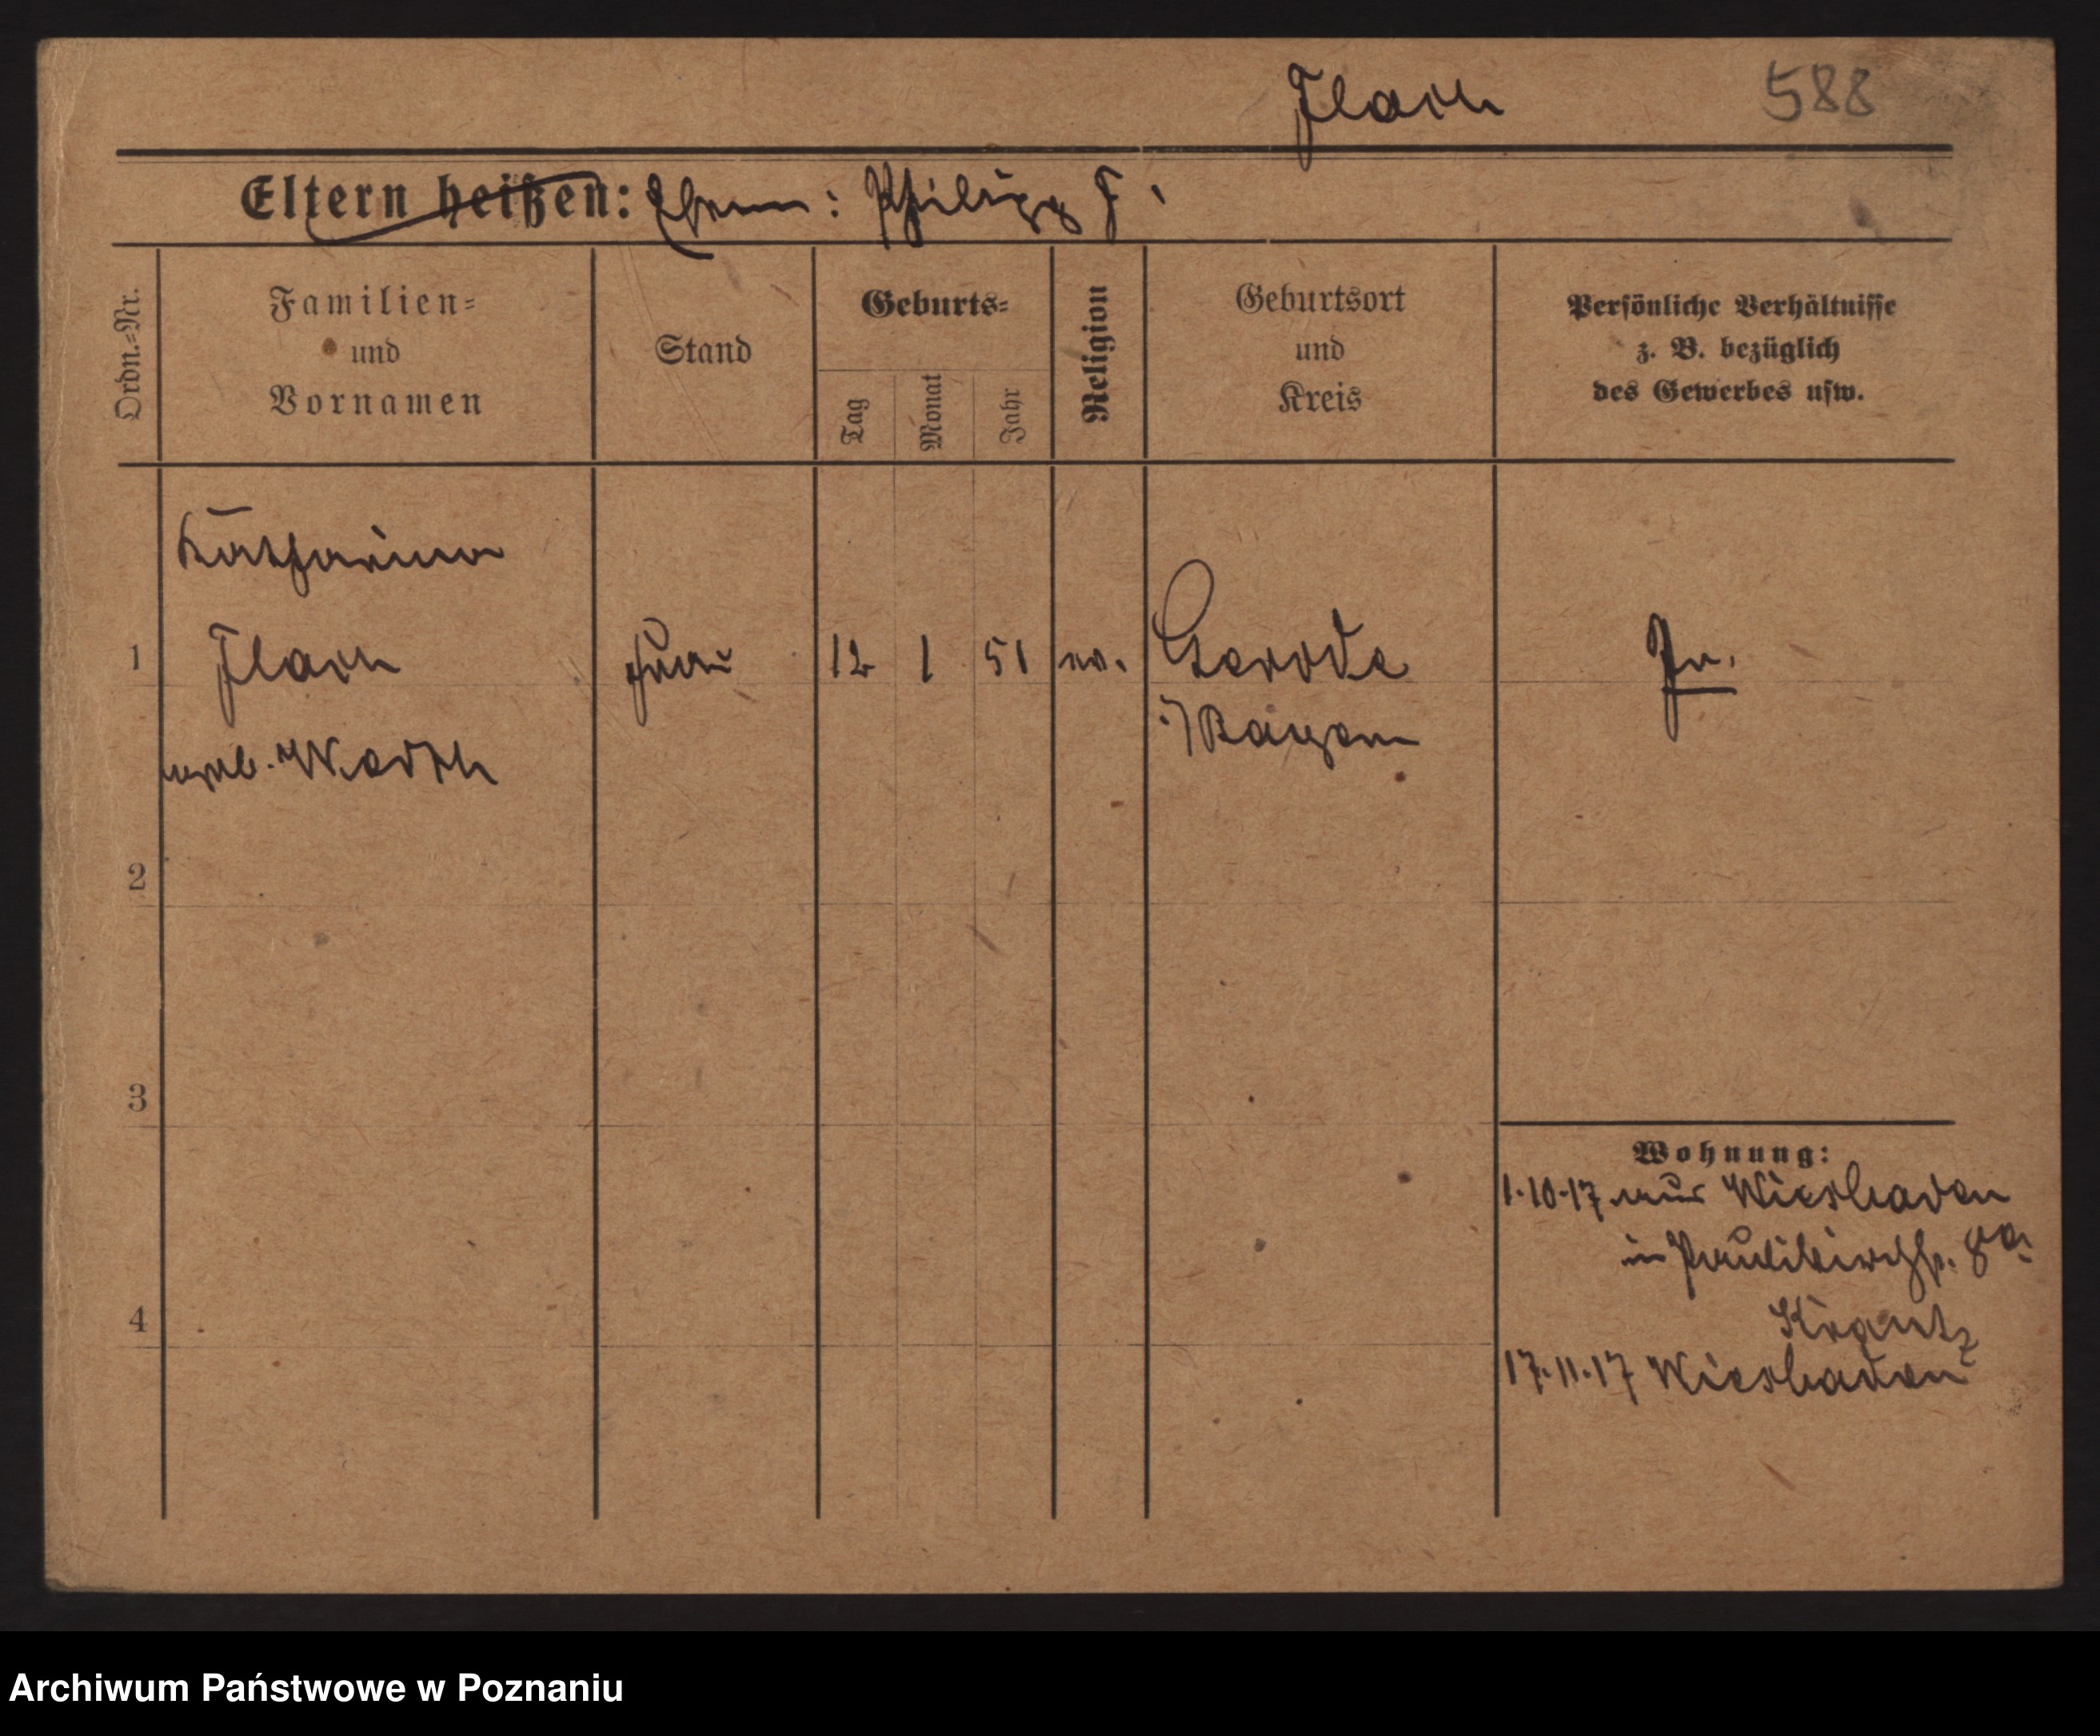 Flach
588
Eltern heißen: Ehem: Philipp F.
Ordn.=Nr.
Familien=
und
Vornamen
Stand
Geburts=
Tag
Monat
Jahr
Religion
Geburtsort
und
Kreis
Persönliche Verhältnisse
z. B. bezüglich
des Gewerbes usw.
Katharina
1 Flach Frau 12 1 51 ev. Gerode Pr.
i/Bayern
geb.
2
3
4
Wohnung:
1.10.17 aus Wiesbaden
in Paulikirchstr. 8a.
Krantz
17.11.17 Wiesbaden
Archiwum Państwowe w Poznaniu